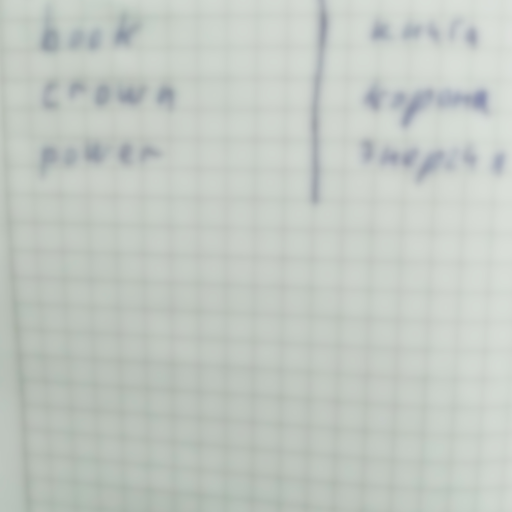 book книга
crown корона
power энергия